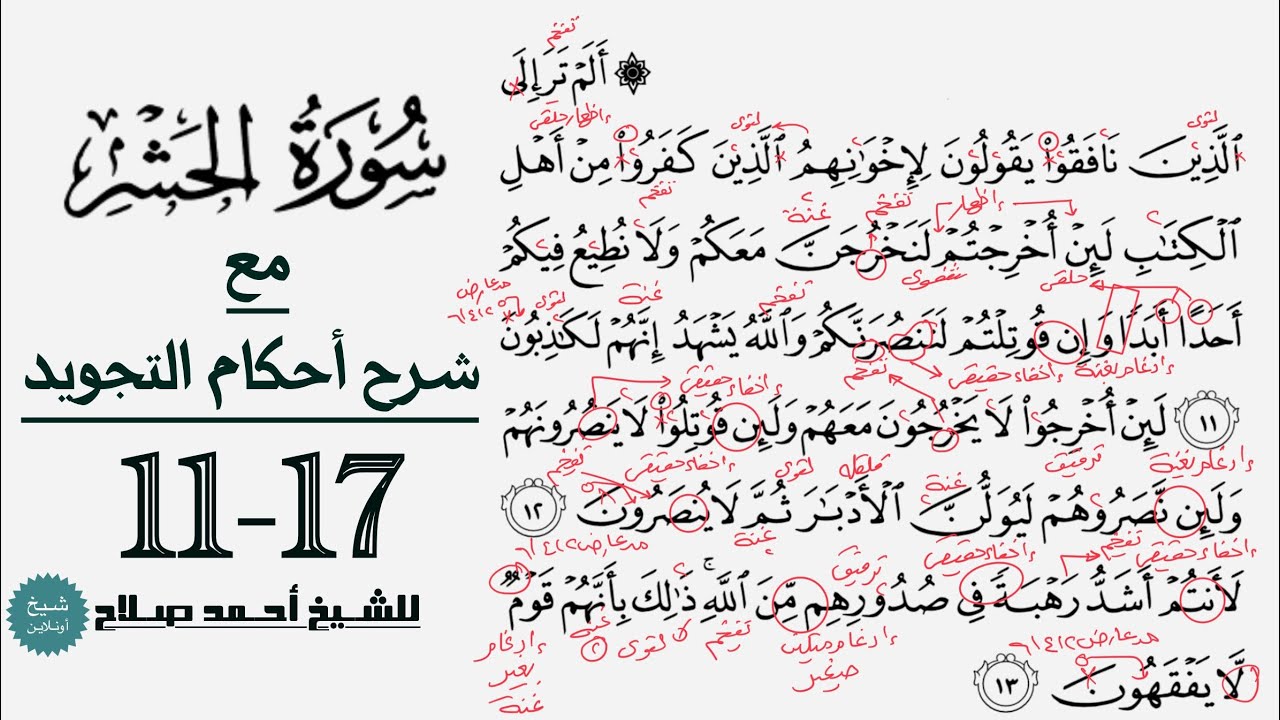 سُورَةُ الحَشْرِ
مع
شرح أحكام التجويد
11-17
للشيخ أحمد صلاح
شيخ
أونلاين
تفخم
۞ أَلَمۡ تَرَ إِلَى
لثوى
لثوى
إظهار حلقى
ٱلَّذِينَ نَافَقُواْ يَقُولُونَ لِإِخۡوَٰنِهِمُ ٱلَّذِينَ كَفَرُواْ مِنۡ أَهۡلِ
تفخم
إظهار
تفخم
غنة
ٱلۡكِتَٰبِ لَئِنۡ أُخۡرِجۡتُمۡ لَنَخۡرُجَنَّ مَعَكُمۡ وَلَا نُطِيعُ فِيكُمۡ
حلقى
شفوى
تفخم
غنة
لثوى
مد عارض ٢ ٤ ٦
أَحَدًا أَبَدٗا وَإِن قُوتِلۡتُمۡ لَنَنصُرَنَّكُمۡ وَٱللَّهُ يَشۡهَدُ إِنَّهُمۡ لَكَٰذِبُونَ
إدغام بغنة
إخفاء حقيقى
تفخم
إخفاء حقيقى
١١ لَئِنۡ أُخۡرِجُواْ لَا يَخۡرُجُونَ مَعَهُمۡ وَلَئِن قُوتِلُواْ لَا يَنصُرُونَهُمۡ
إدغام بغنة
ترقيق
غنة
لقوى
قلقلة
إخفاء حقيقى
تفخم
وَلَئِن نَّصَرُوهُمۡ لَيُوَلُّنَّ ٱلۡأَدۡبَٰرَ ثُمَّ لَا يُنصَرُونَ ١٢
إخفاء حقيقى
تفخم
إخفاء حقيقى
ترقيق
غنة
مد عارض ٢ ٤ ٦
لَأَنتُمۡ أَشَدُّ رَهۡبَةٗ فِي صُدُورِهِم مِّنَ ٱللَّهِۚ ذَٰلِكَ بِأَنَّهُمۡ قَوۡمٞ
مد عارض ٢ ٤ ٦
إدغام مثلين
صغير
تفخم
لقوى
غنة
إدغام
بغير
غنة
لَّا يَفۡقَهُونَ ١٣